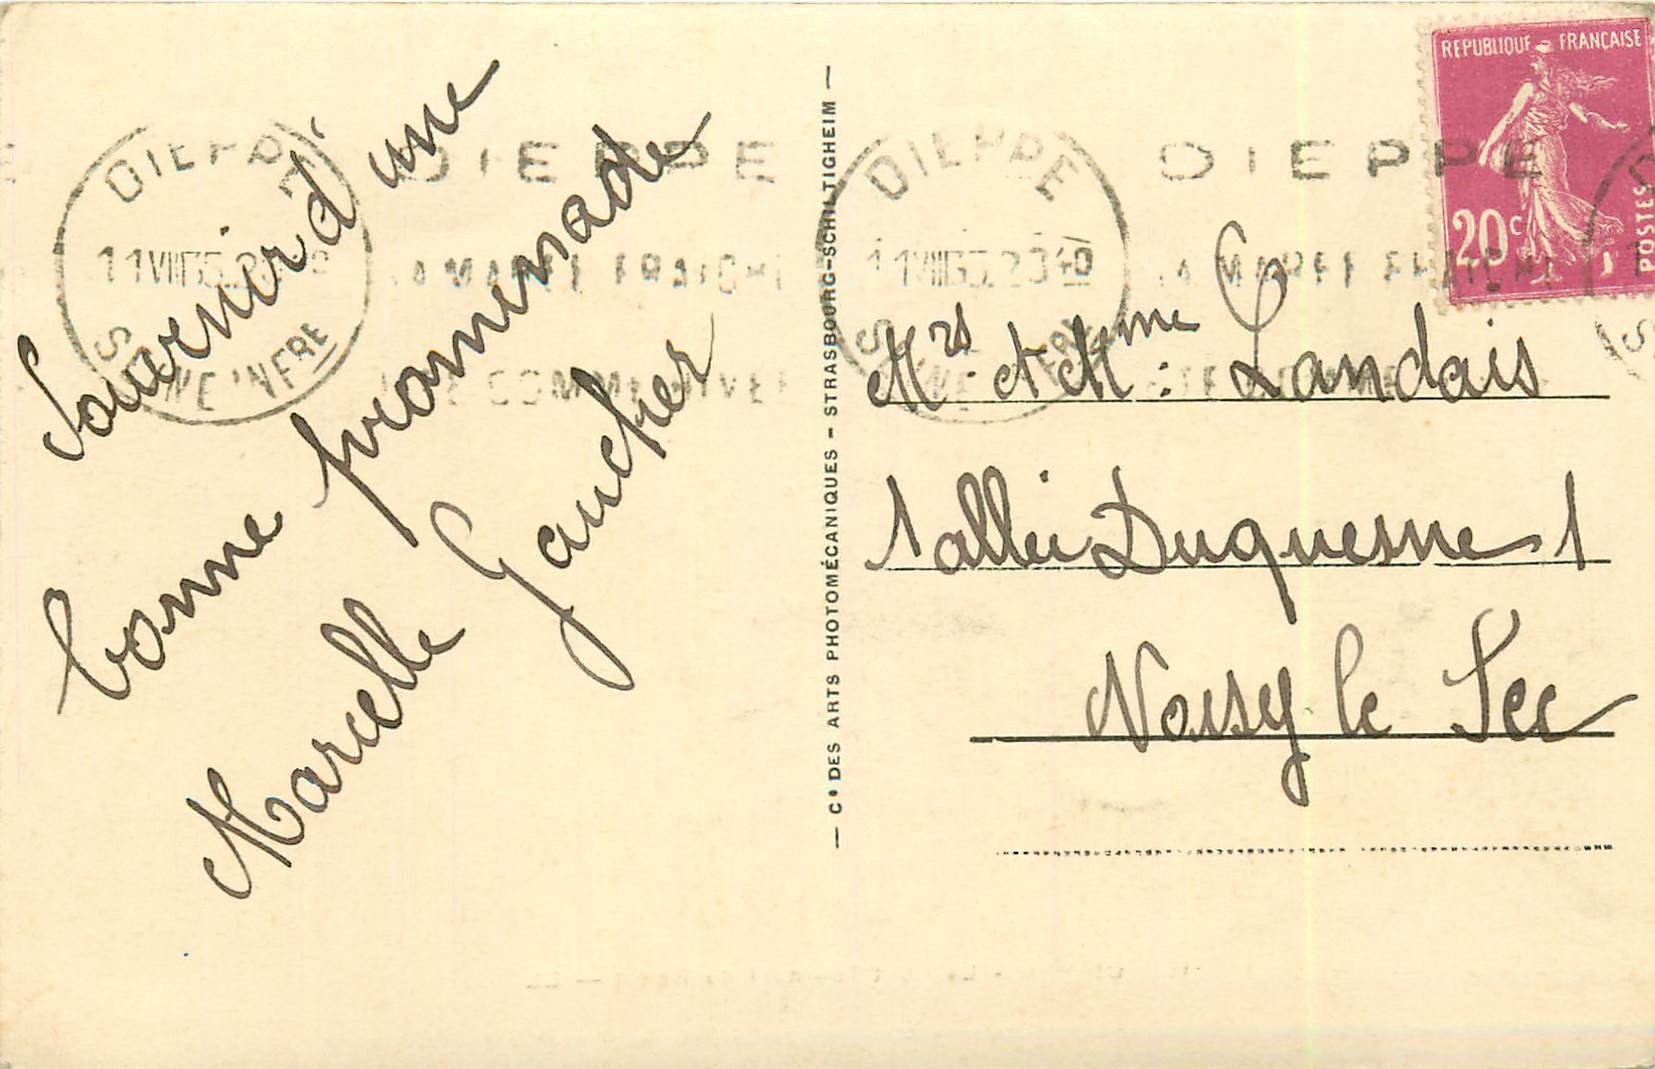 Souvenir d'une
bonne promenade
Marcelle Gaucher
DIEPPE
11 VIII 35
SEINE INFRE
DIEPPE
LA MAREE FRAICHE
ETE COMME HIVER
— Cie DES ARTS PHOTOMÉCANIQUES – STRASBOURG-SCHILTIGHEIM —
DIEPPE
11 VIII 35 20 40
DIEPPE
LA MAREE FRAICHE
REPUBLIQUE FRANÇAISE
20c
POSTES
Mrs et Mme : Landais
1 allée Duquesne 1
Noisy le Sec